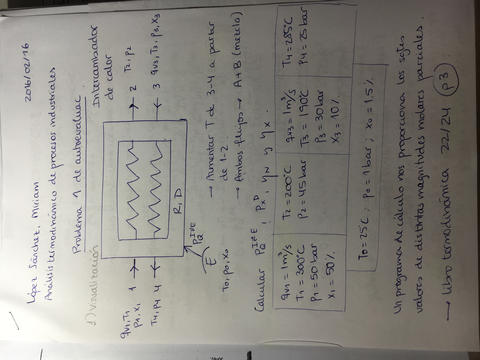 López Sánchez, Miriam
2016/02/16
Análisis termodinámico de procesos industriales
Problema 1 de autoevaluac
1) Visualización
Intercambiador
de calor
qv1, T1,
p1, x1
1
T4, p4 4
2 T2, p2
3 qv3, T3, p3, x3
R, D
E
T0, p0, x0
→ Aumentar T de 3-4 a partir
de 1-2.
→ Ambos flujos → A+B (mezcla)
qv1 = 1 m³/s
T1 = 300°C
p1 = 50 bar
x1 = 50%
T2 = 200°C
p2 = 45 bar
qv3 = 1 m³/s
T3 = 190°C
p3 = 30 bar
x3 = 10%
T4 = 285°C
p4 = 25 bar
T0 = 25°C ; p0 = 1 bar ; x0 = 1,5%
Un programa de cálculo nos proporciona los sgtes
valores de distintas magnitudes molares parciales.
→ libro termodinámica 22/24 p3